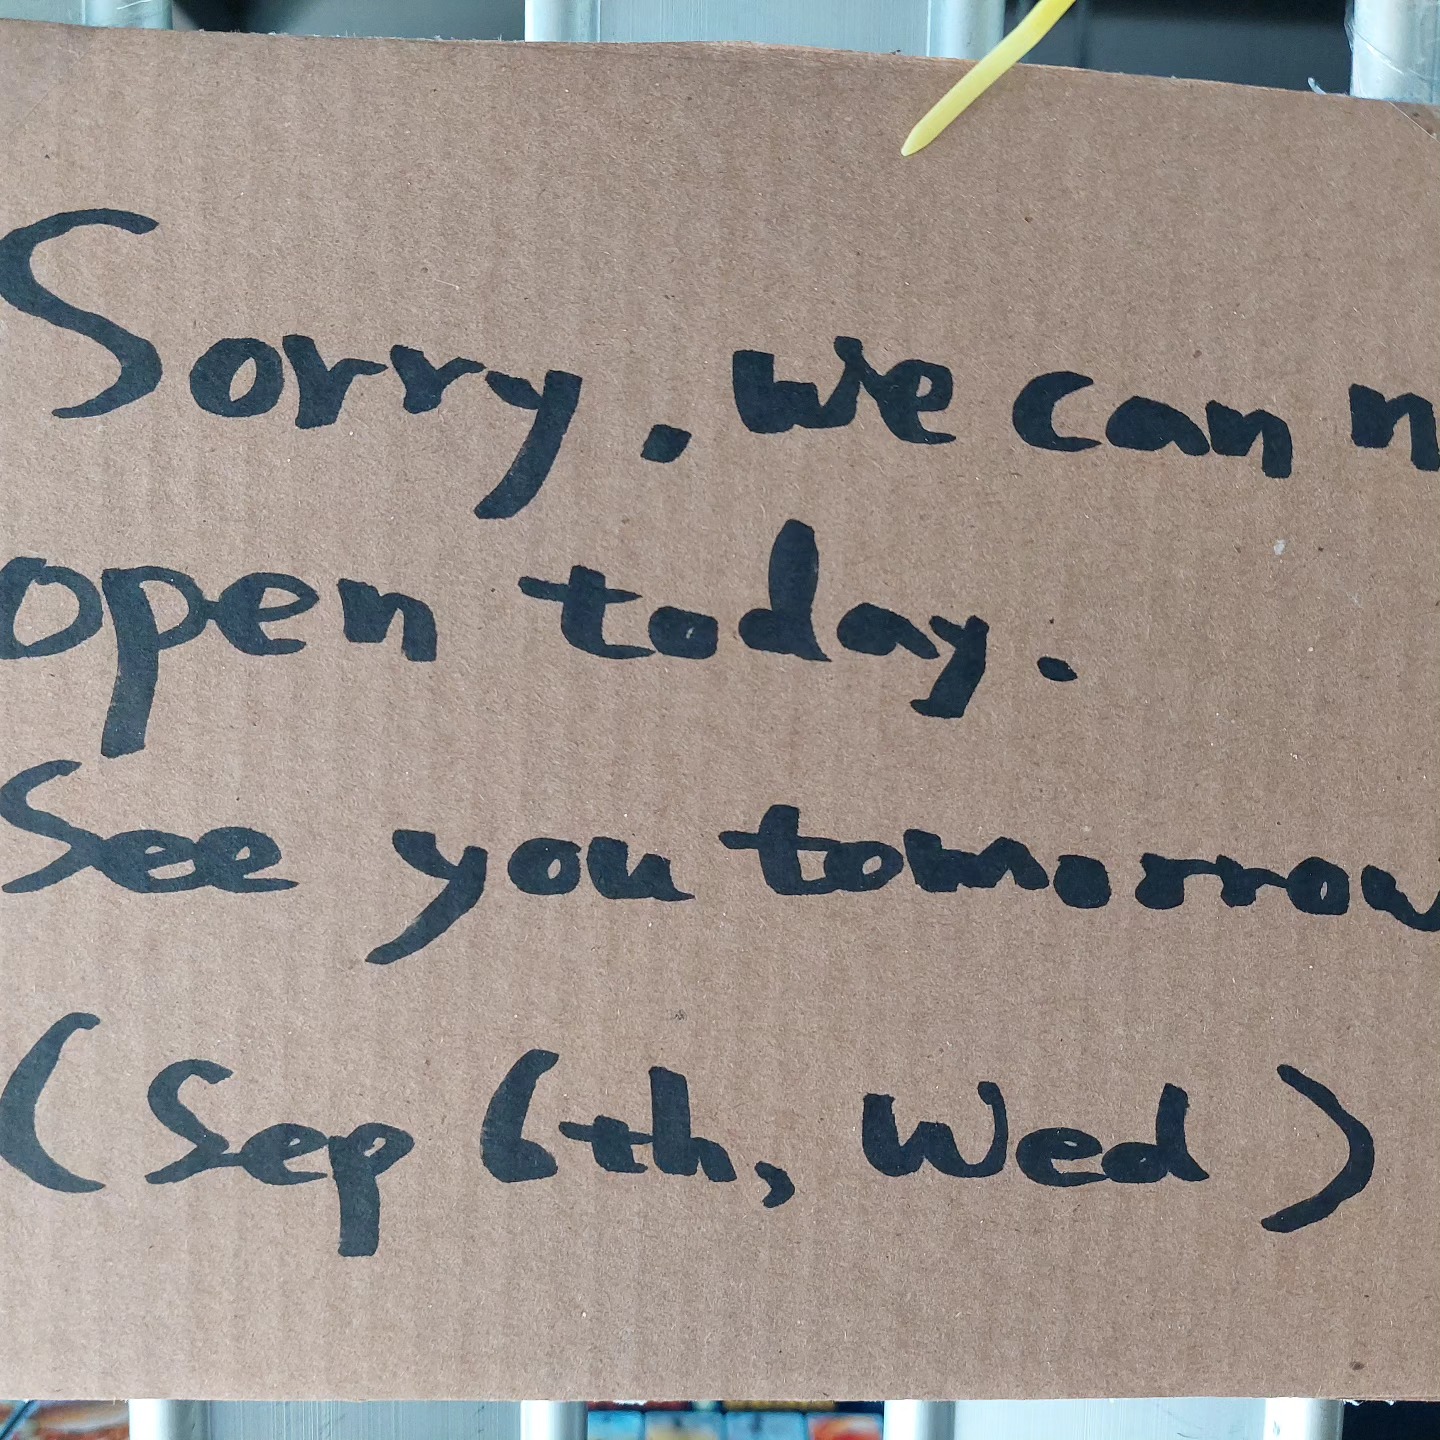 Sorry. we can n
open today.
See you tomorrow
(Sep 6th, Wed)